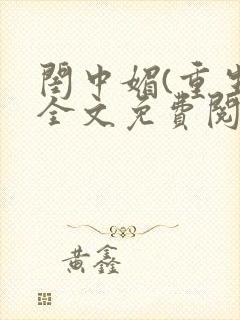 閨中媚(重生
全文免費閱
黄鑫